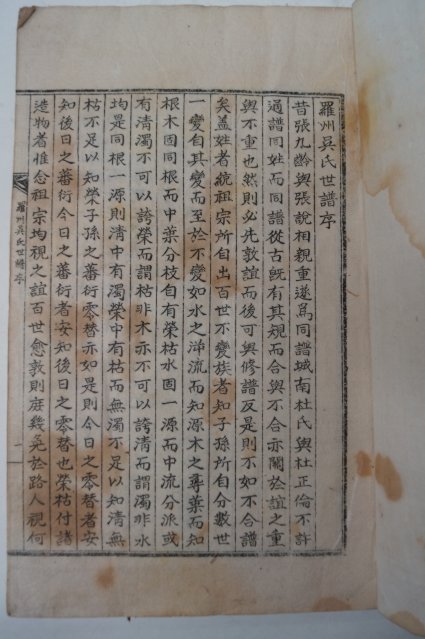 羅州吳氏世譜序
昔張九齡與張說相親重遂爲同譜城南杜氏與杜正倫不許
通譜同姓而同譜從古旣有其規而合與不合亦關於誼之重
與不重也然則必先敦誼而後可與修譜反是則不如不合譜
矣盖姓者統祖宗所自出百世不變族者知子孫所自分數世
一變自其變而至於不變如水之泝流而知源木之尋葉而知
根木固同根而中葉分枝自有榮枯水固一源而中流分派或
有清濁不可以誇榮而謂枯非木亦不可以誇清而謂濁非水
均是同根一源則清中有濁榮中有枯而無濁不足以知清無
枯不足以知榮子孫之蕃衍零替亦如是則今日之零替者安
知後日之蕃衍今日之蕃衍者安知後日之零替也榮枯付諸
造物者惟念祖宗均視之誼百世愈敦則庶幾免於路人視何
羅州吳氏世譜序
一